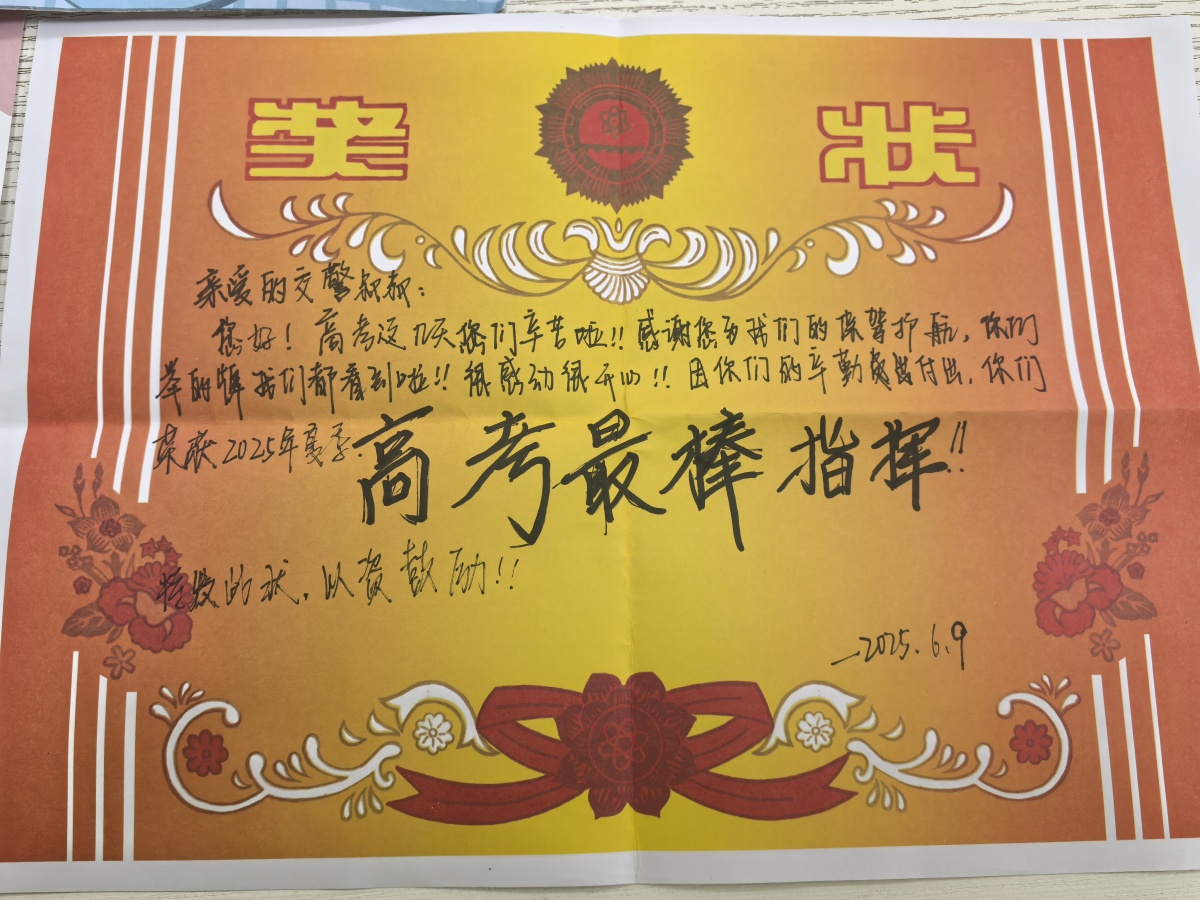 奖 状
亲爱的交警叔叔：
您好！高考这几天您们辛苦啦！！感谢您为我们的保驾护航，你们
举的牌我们都看到啦！！很感动很开心！！因你们的辛勤付出，你们
荣获2025年夏季
高考最棒指挥！！
特发的状，以资鼓励！！
—2025.6.9